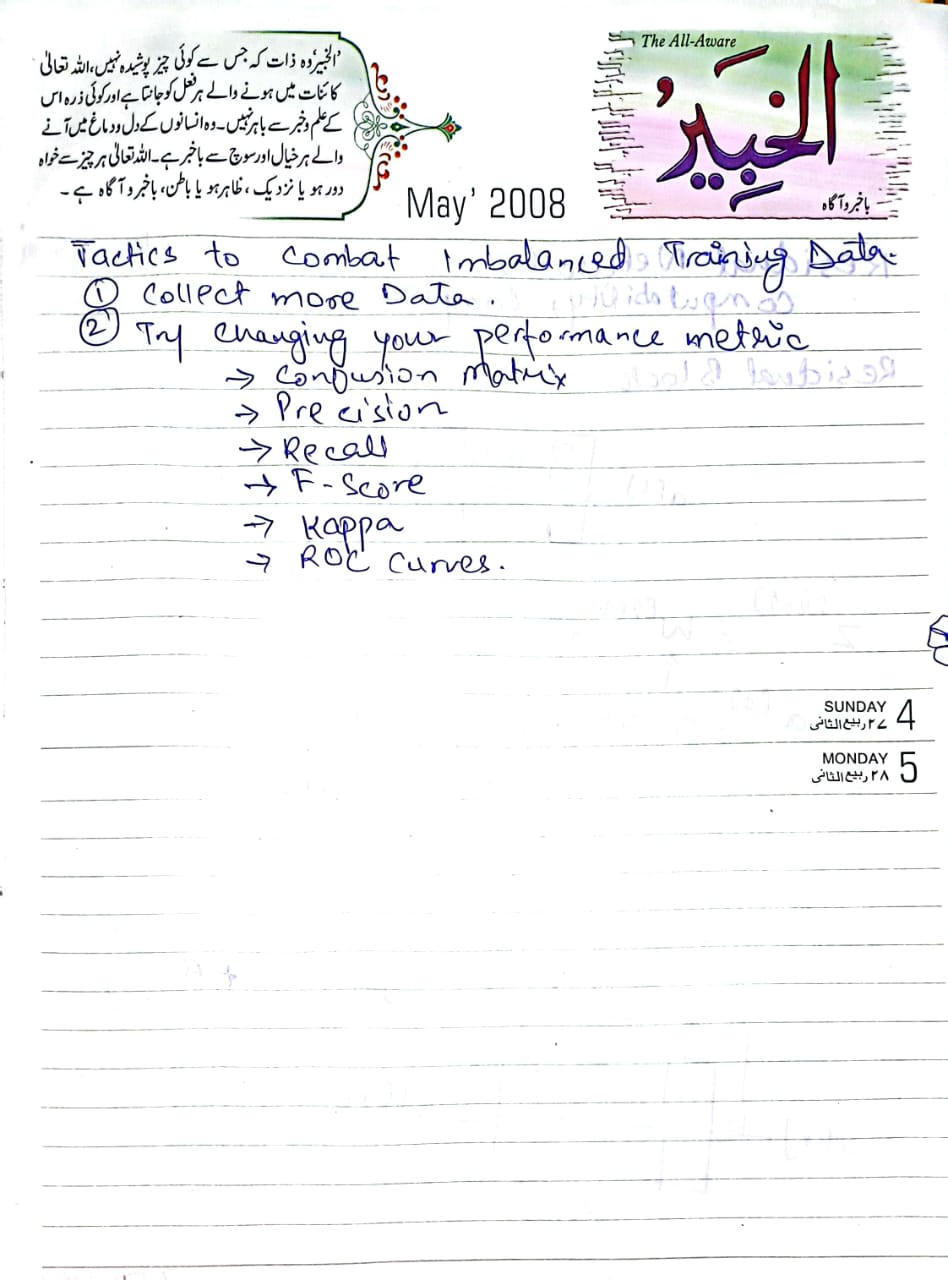 'الخبیر' وہ ذات کہ جس سے کوئی چیز پوشیدہ نہیں، اللہ تعالیٰ
کائنات میں ہونے والے ہر فعل کو جانتا ہے اور کوئی ذرہ اس
کے علم و خبر سے باہر نہیں۔ وہ انسانوں کے دل و دماغ میں آنے
والے ہر خیال اور سوچ سے باخبر ہے۔ اللہ تعالیٰ ہر چیز سے خواہ
دور ہو یا نزدیک، ظاہر ہو یا باطن، باخبر و آگاہ ہے۔
The All-Aware
الخَبِيرُ
باخبر و آگاہ
May' 2008
Tactics to Combat Imbalanced Training Data.
① Collect more Data.
② Try changing your performance metric
→ Confusion Matrix
→ Precision
→ Recall
→ F-Score
→ Kappa
→ ROC Curves.
SUNDAY 4
۲۷ ربیع الثانی
MONDAY 5
۲۸ ربیع الثانی